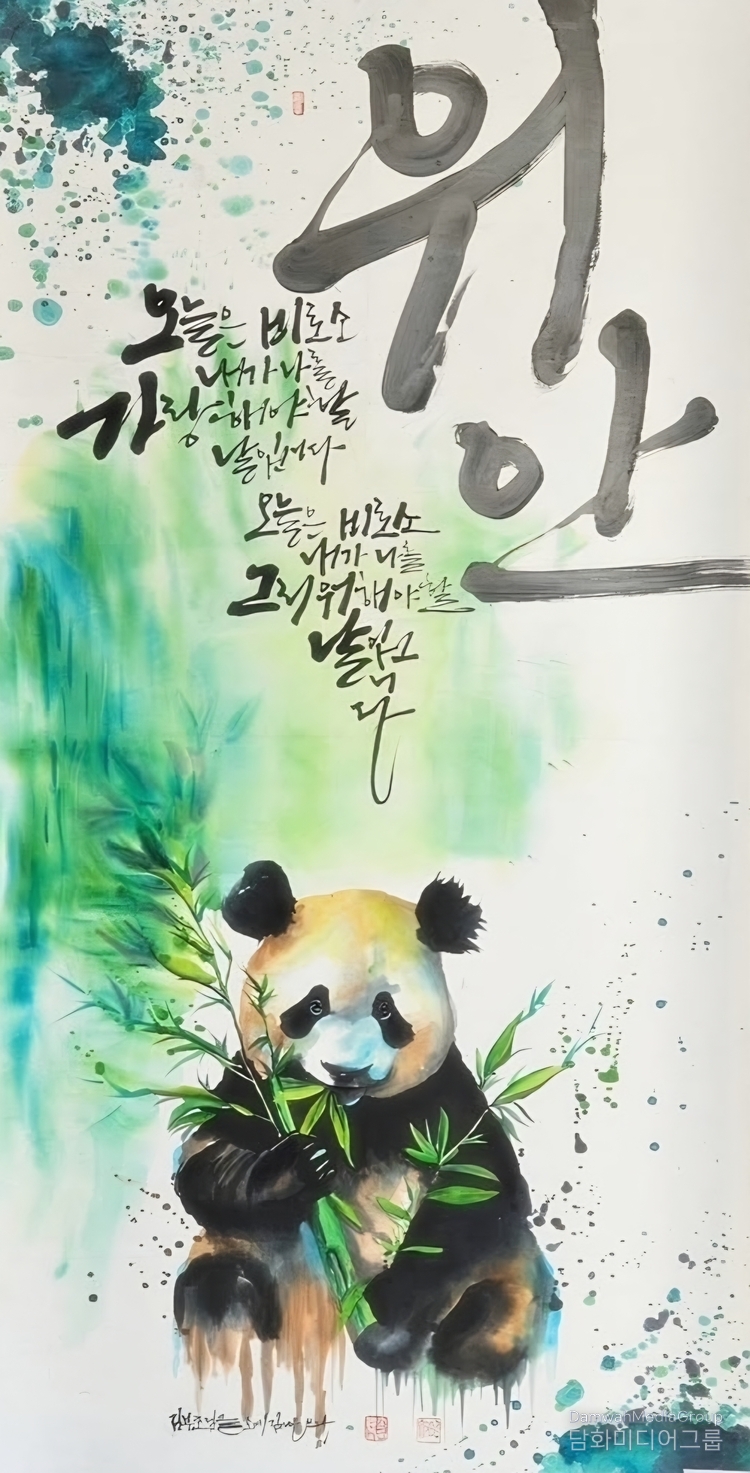 위안
오늘은 비로소
내가 나를
사랑해야 할
날입니다
오늘은 비로소
내가 나를
그리워해야 할
날입니
다
DamwhaMediaGroup
담화미디어그룹